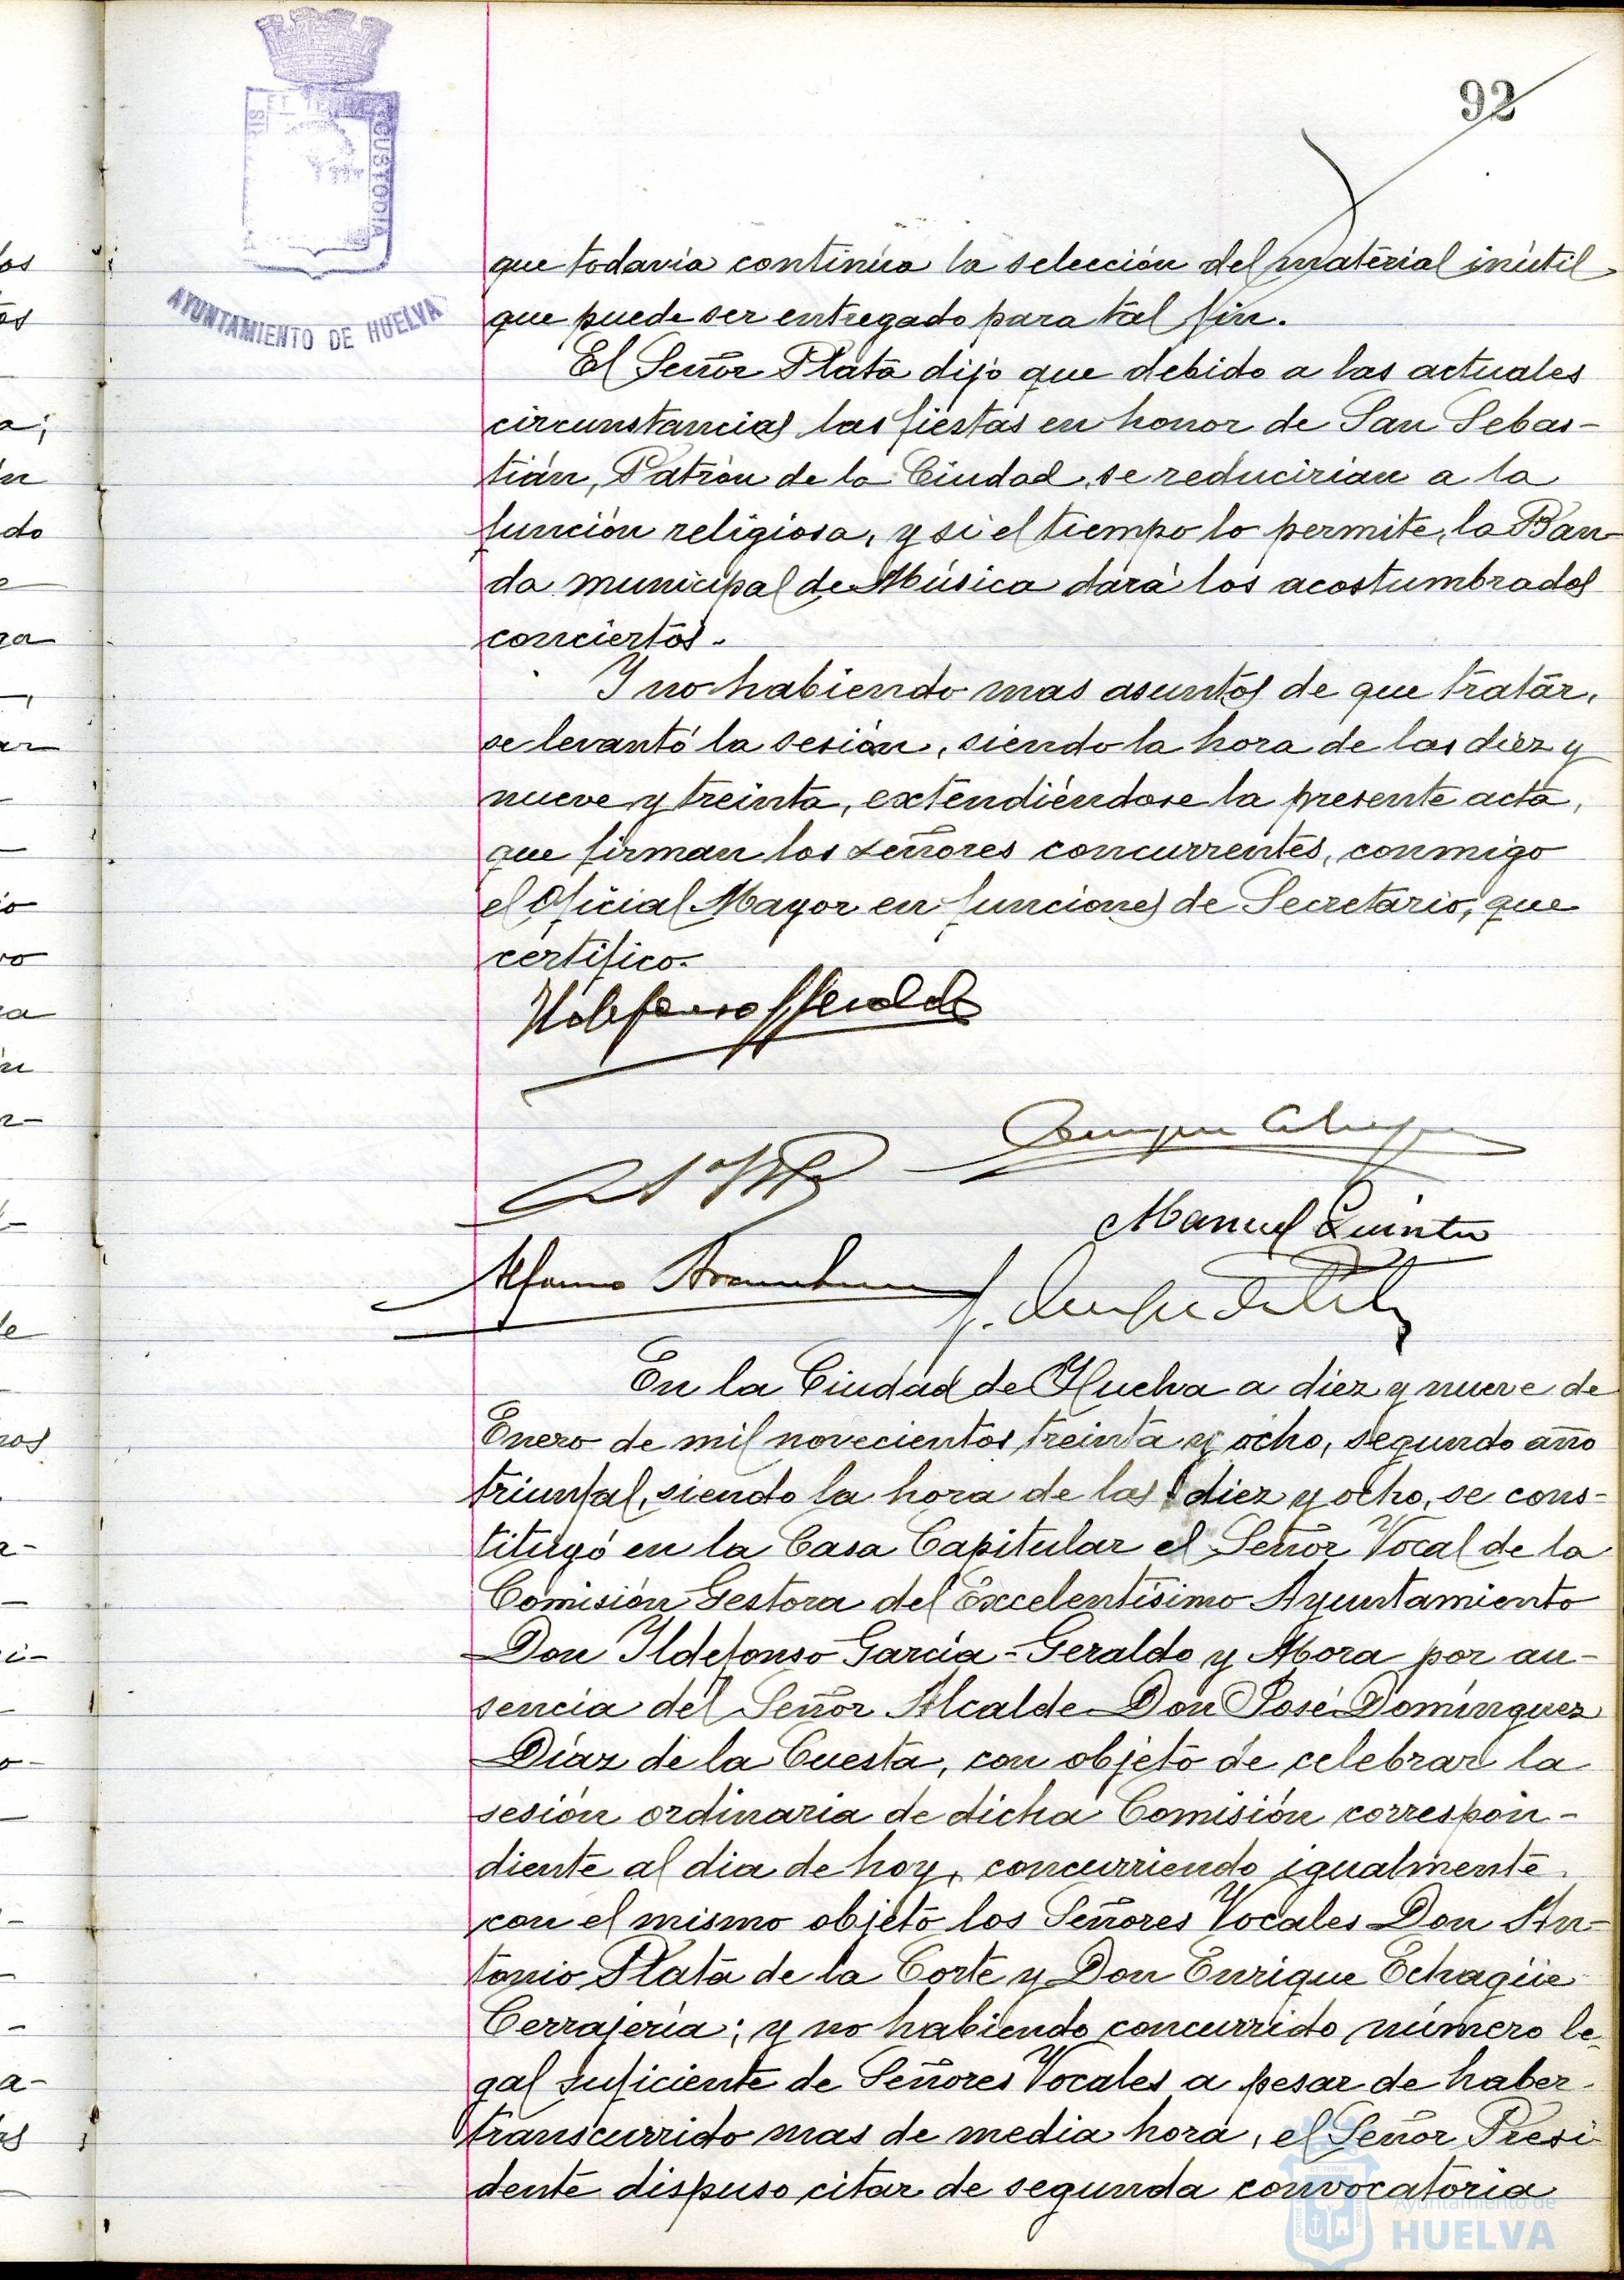 92
ET TERRE CUSTODIA
AYUNTAMIENTO DE HUELVA
que todavía continúa la selección del material inútil
que puede ser entregado para tal fin.
El Señor Plata dijo que debido a las actuales
circunstancias las fiestas en honor de San Sebas-
tián, Patrón de la Ciudad, se reducirían a la
función religiosa, y si el tiempo lo permite, la Ban-
da municipal de Música dará los acostumbrados
conciertos.
Y no habiendo mas asuntos de que tratar,
se levantó la sesión, siendo la hora de las diez y
nueve y treinta, extendiéndose la presente acta,
que firman los señores concurrentes, conmigo
el Oficial Mayor en funciones de Secretario, que
certifico.
Manuel Quintero
En la Ciudad de Huelva a diez y nueve de
Enero de mil novecientos treinta y ocho, segundo año
triunfal, siendo la hora de las diez y ocho, se cons-
tituyó en la Casa Capitular el Señor Vocal de la
Comisión Gestora del Excelentísimo Ayuntamiento
Don Ildefonso García-Geraldo y Mora por au-
sencia del Señor Alcalde Don José Domínguez
Díaz de la Cuesta, con objeto de celebrar la
sesión ordinaria de dicha Comisión correspon-
diente al dia de hoy, concurriendo igualmente
con el mismo objeto los Señores Vocales Don An-
tonio Plata de la Corte y Don Enrique Echagüe
Cerrajería; y no habiendo concurrido número le-
gal suficiente de Señores Vocales a pesar de haber
transcurrido mas de media hora, el Señor Presi-
dente dispuso citar de segunda convocatoria
Ayuntamiento de
HUELVA